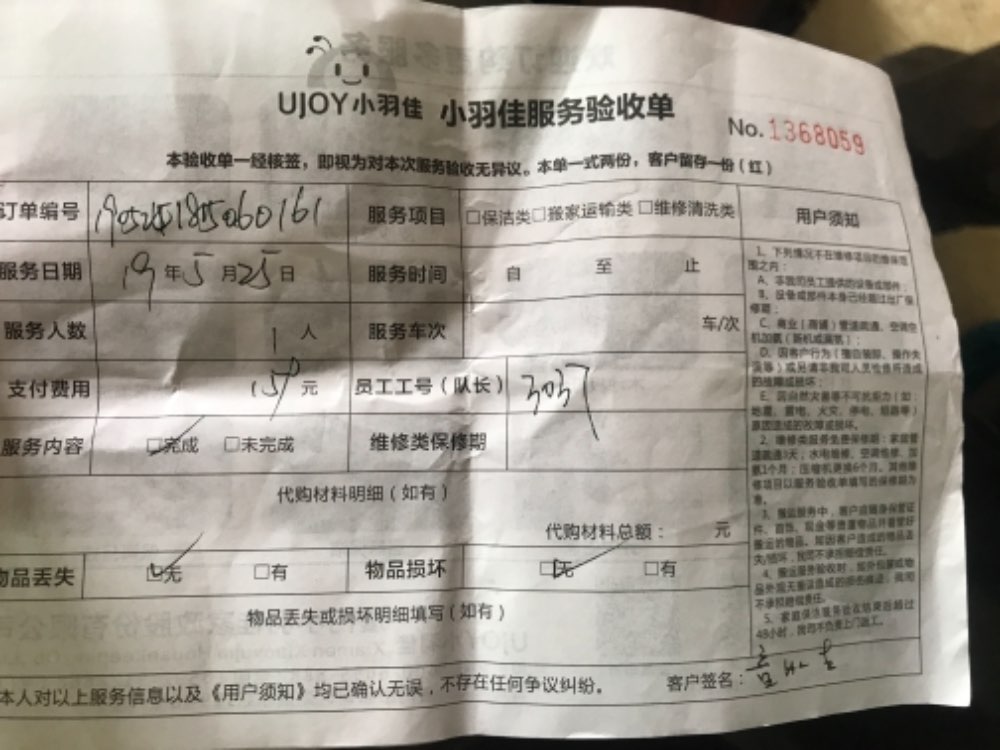 UJOY小羽佳 小羽佳服务验收单
No.1368059
本验收单一经核签，即视为对本次服务验收无异议。本单一式两份，客户留存一份（红）
订单编号 190524185060161 服务项目 □保洁类□搬家运输类□维修清洗类
服务日期 19年5月25日 服务时间 自 至 止
服务人数 1人 服务车次 车/次
支付费用 150元 员工工号（队长） 3037
服务内容 □完成 □未完成 维修类保修期
代购材料明细（如有）
代购材料总额： 元
物品丢失 □无 □有 物品损坏 □无 □有
物品丢失或损坏明细填写（如有）
本人对以上服务信息以及《用户须知》均已确认无误，不存在任何争议纠纷。 客户签名：
用户须知
1、下列情况不在维修项目的维保范
围之内：
A、非我司员工提供的设备或部件；
B、设备或部件本身已经超过出厂保
修期；
C、商业（商铺）管道疏通、空调空
机加氨（新机或漏氨）；
D、因客户行为（擅自装卸、操作失
误等）或另请非我司人员检修所造成
的故障或损坏；
E、因自然灾害等不可抗拒力（如：
地震、雷电、火灾、停电、短路等）
原因造成的故障或损坏。
2、维修类服务免费保修期：家庭管
道疏通3天；水电维修、空调维修、加
氨1个月；压缩机更换6个月。其他维
修项目以服务验收单填写的保修期为
准。
3、搬运服务中，客户应随身保管证
件、首饰、现金等贵重物品并看管好
搬运的物品。如因客户造成的物品丢
失/损坏，我司不承担赔偿责任。
4、搬运服务验收时，如外包装或物
品外观无重误造成的损伤痕迹，我司
不承担赔偿责任。
5、家庭保洁服务验收结束后超过
48小时，我司不负责上门返工。